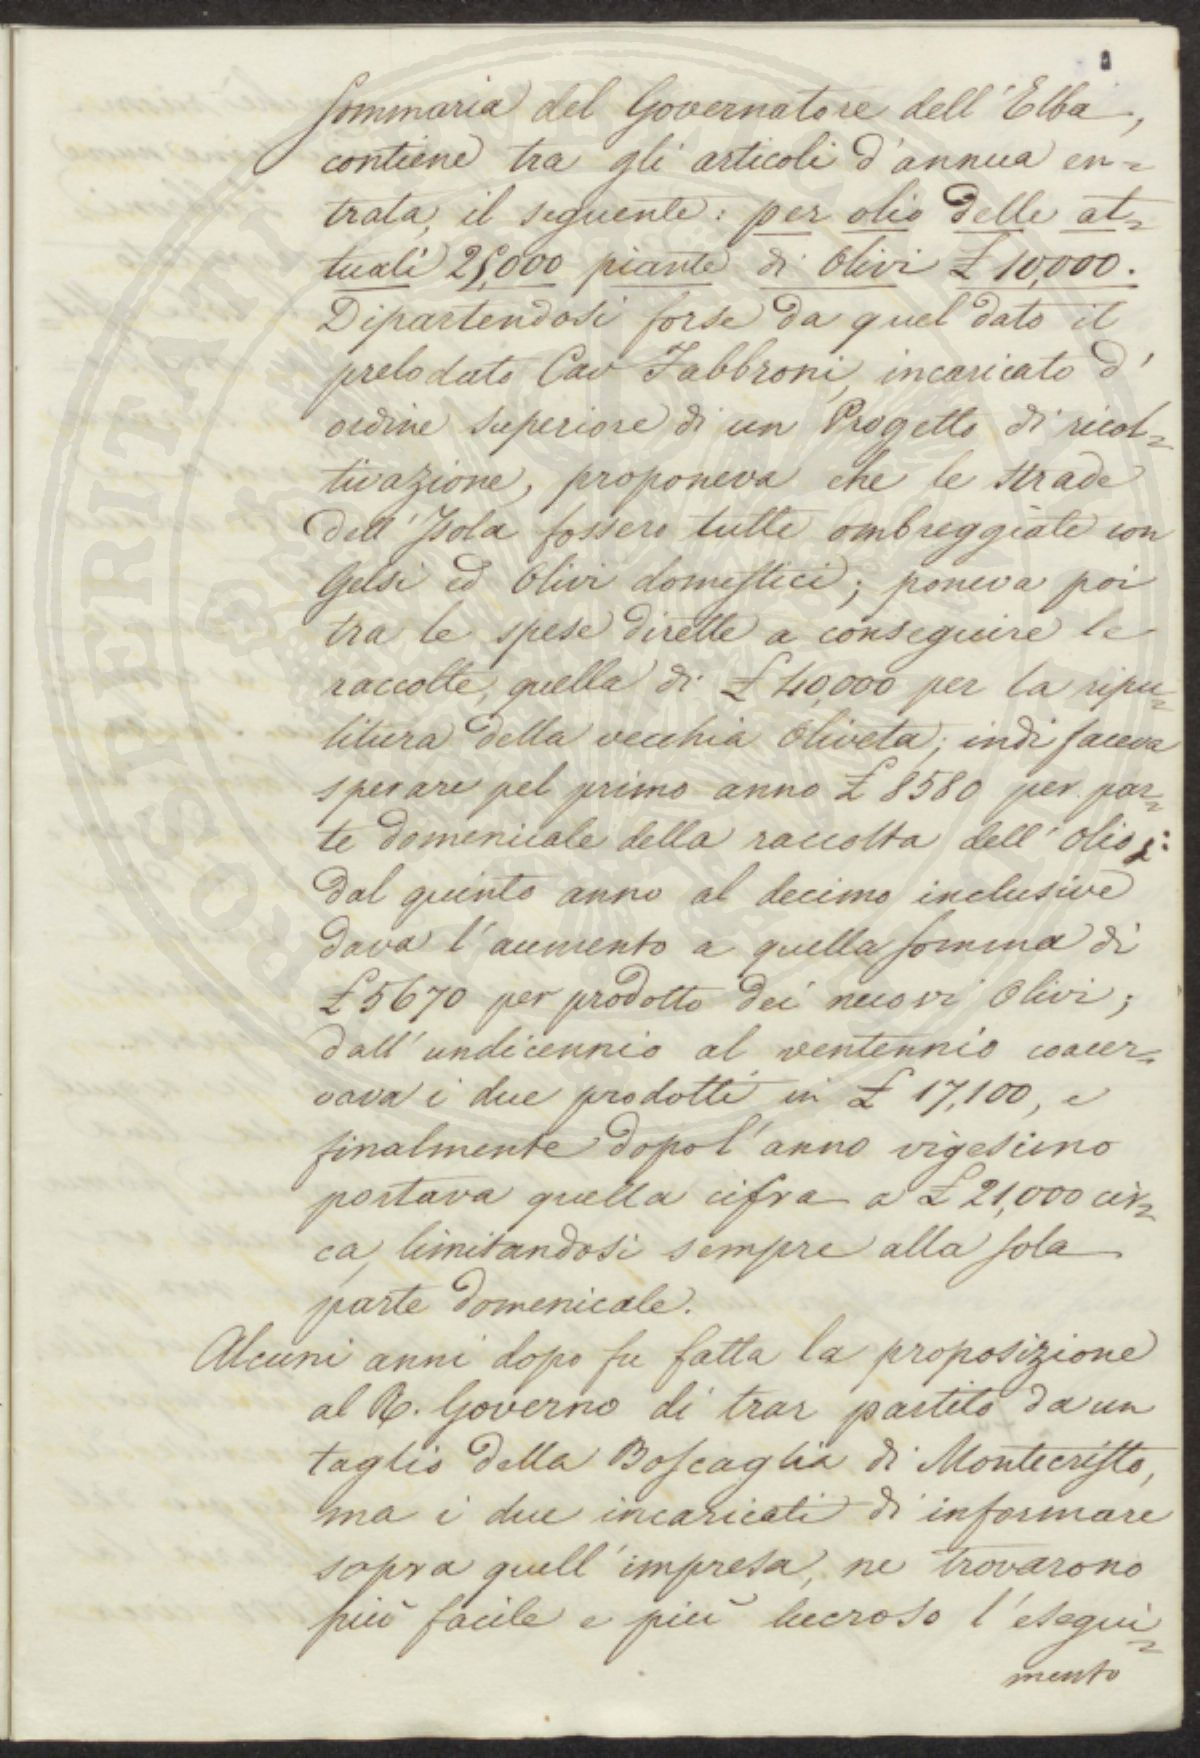 Sommaria del Governatore dell'Elba,
contiene tra gli articoli d'annua en=
trata, il seguente: per olio delle at=
tuali 25,000 piante di Olivi £ 10,000.
Dipartendosi forse da quel dato il
prelodato Cav Fabbroni, incaricato d'
ordine superiore di un Progetto di ricol=
tivazione, proponeva che le strade
dell'Isola fossero tutte ombreggiate con
Gelsi ed Olivi domestici; poneva poi
tra le spese dirette a conseguire le
raccolte, quella di £ 40,000 per la ripu=
litura della vecchia Oliveta; indi faceva
sperare pel primo anno £ 8580 per par=
te domenicale della raccolta dell'Olio;
dal quinto anno al decimo inclusive
dava l'aumento a quella somma di
£ 5670 per prodotto dei nuovi Olivi;
dall'undicennio al ventennio coacer=
vava i due prodotti in £ 17,100, e
finalmente dopo l'anno vigesimo
portava quella cifra a £ 21,000 cir=
ca, limitandosi sempre alla sola
parte domenicale.
Alcuni anni dopo fu fatta la proposizione
al R. Governo di trar partito da un
taglio della Boscaglia di Montecristo,
ma i due incaricati di informare
sopra quell'impresa, ne trovarono
più facile e più lucroso l'esegui=
mento
PROSPERITATI PUBLICAE